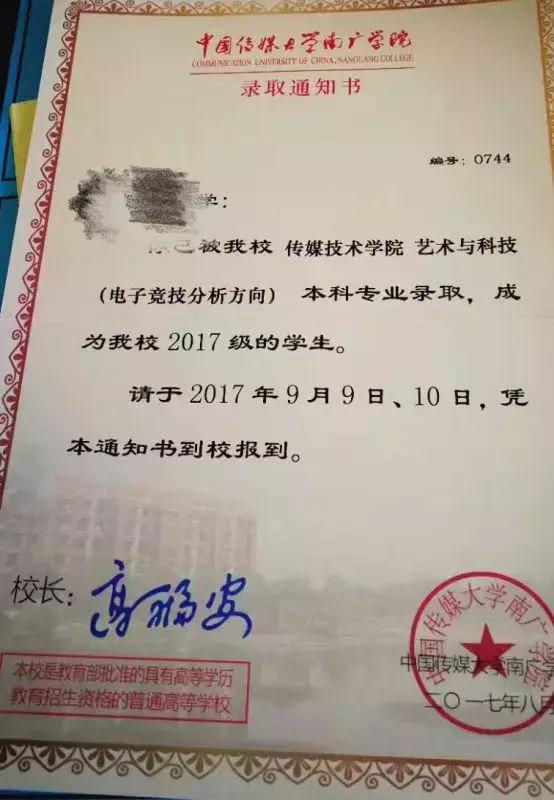 中国传媒大学南广学院
COMMUNICATION UNIVERSITY OF CHINA, NANGUANG COLLEGE
录取通知书
编号：0744
学：
你已被我校 传媒技术学院 艺术与科技
（电子竞技分析方向） 本科专业录取，成
为我校 2017 级的学生。
请于 2017 年 9 月 9 日、10 日，凭
本通知书到校报到。
校长：高福安
中国传媒大学南广学院
中国传媒大学南广学
二〇一七年八月
本校是教育部批准的具有高等学历
教育招生资格的普通高等学校